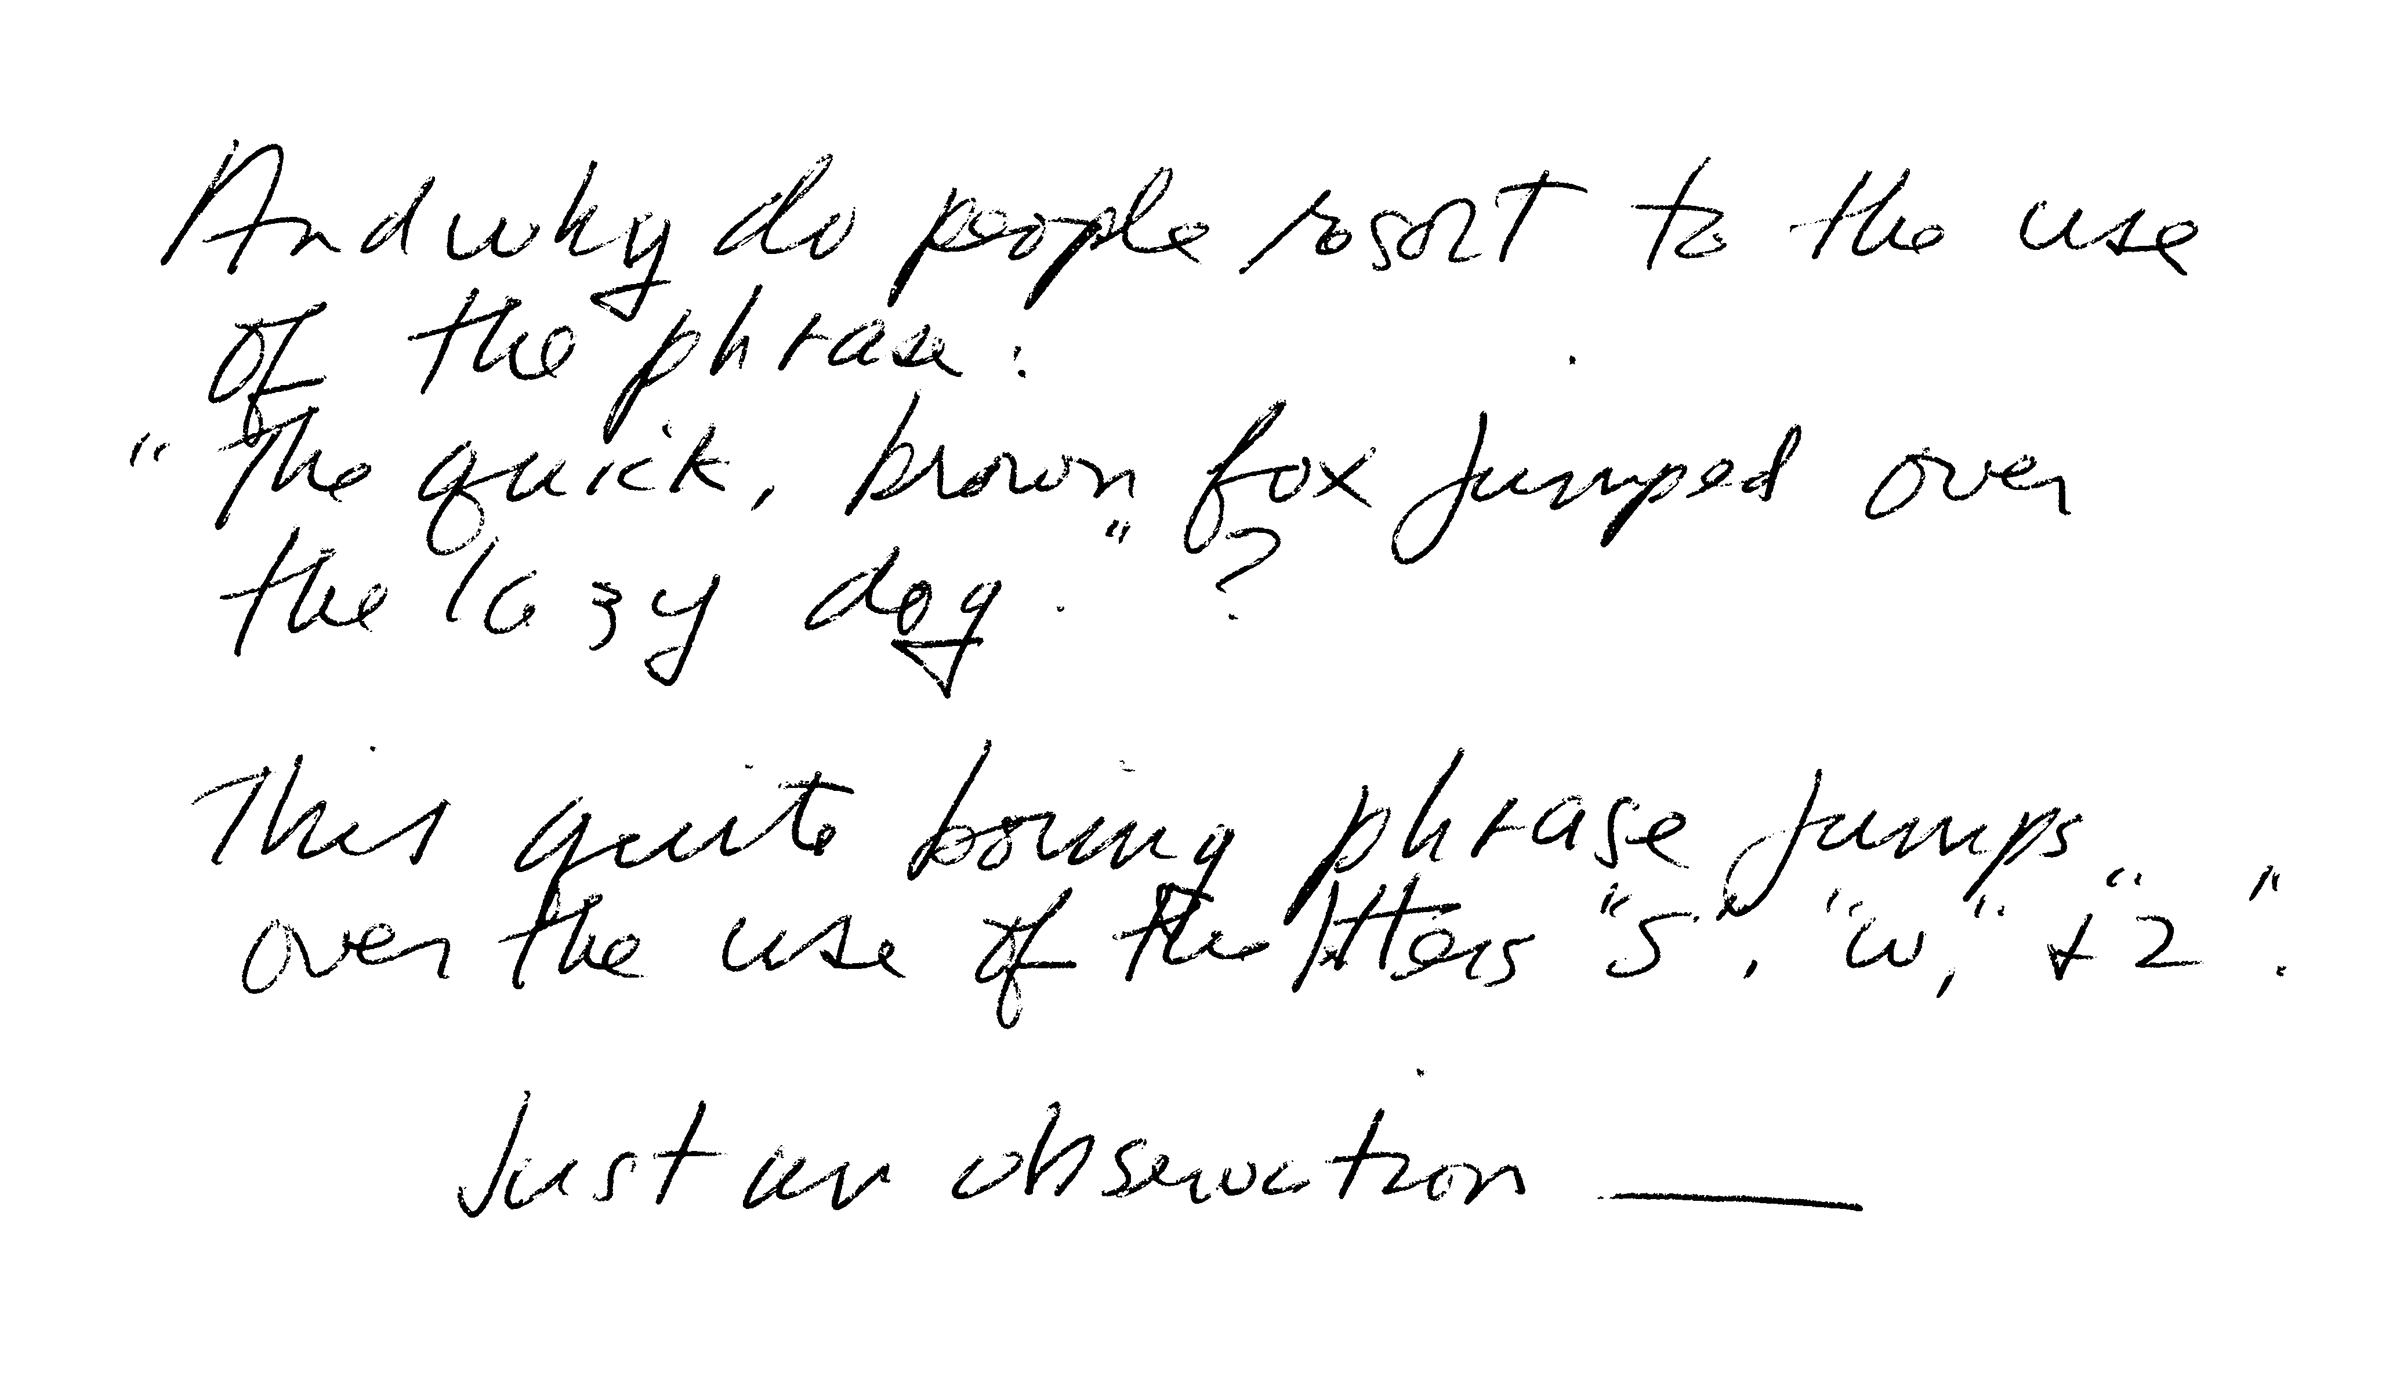 And why do people resort to the use
of the phrase:
"The quick, brown fox jumped over
the lazy dog."?
This quite boring phrase jumps
over the use of the letters "S", "w," + "2".
Just an observation —